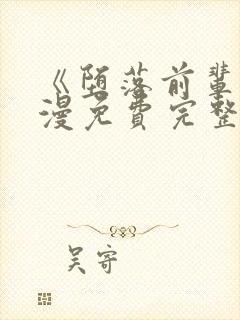 《堕落前辈
漫免费完整
吴寄